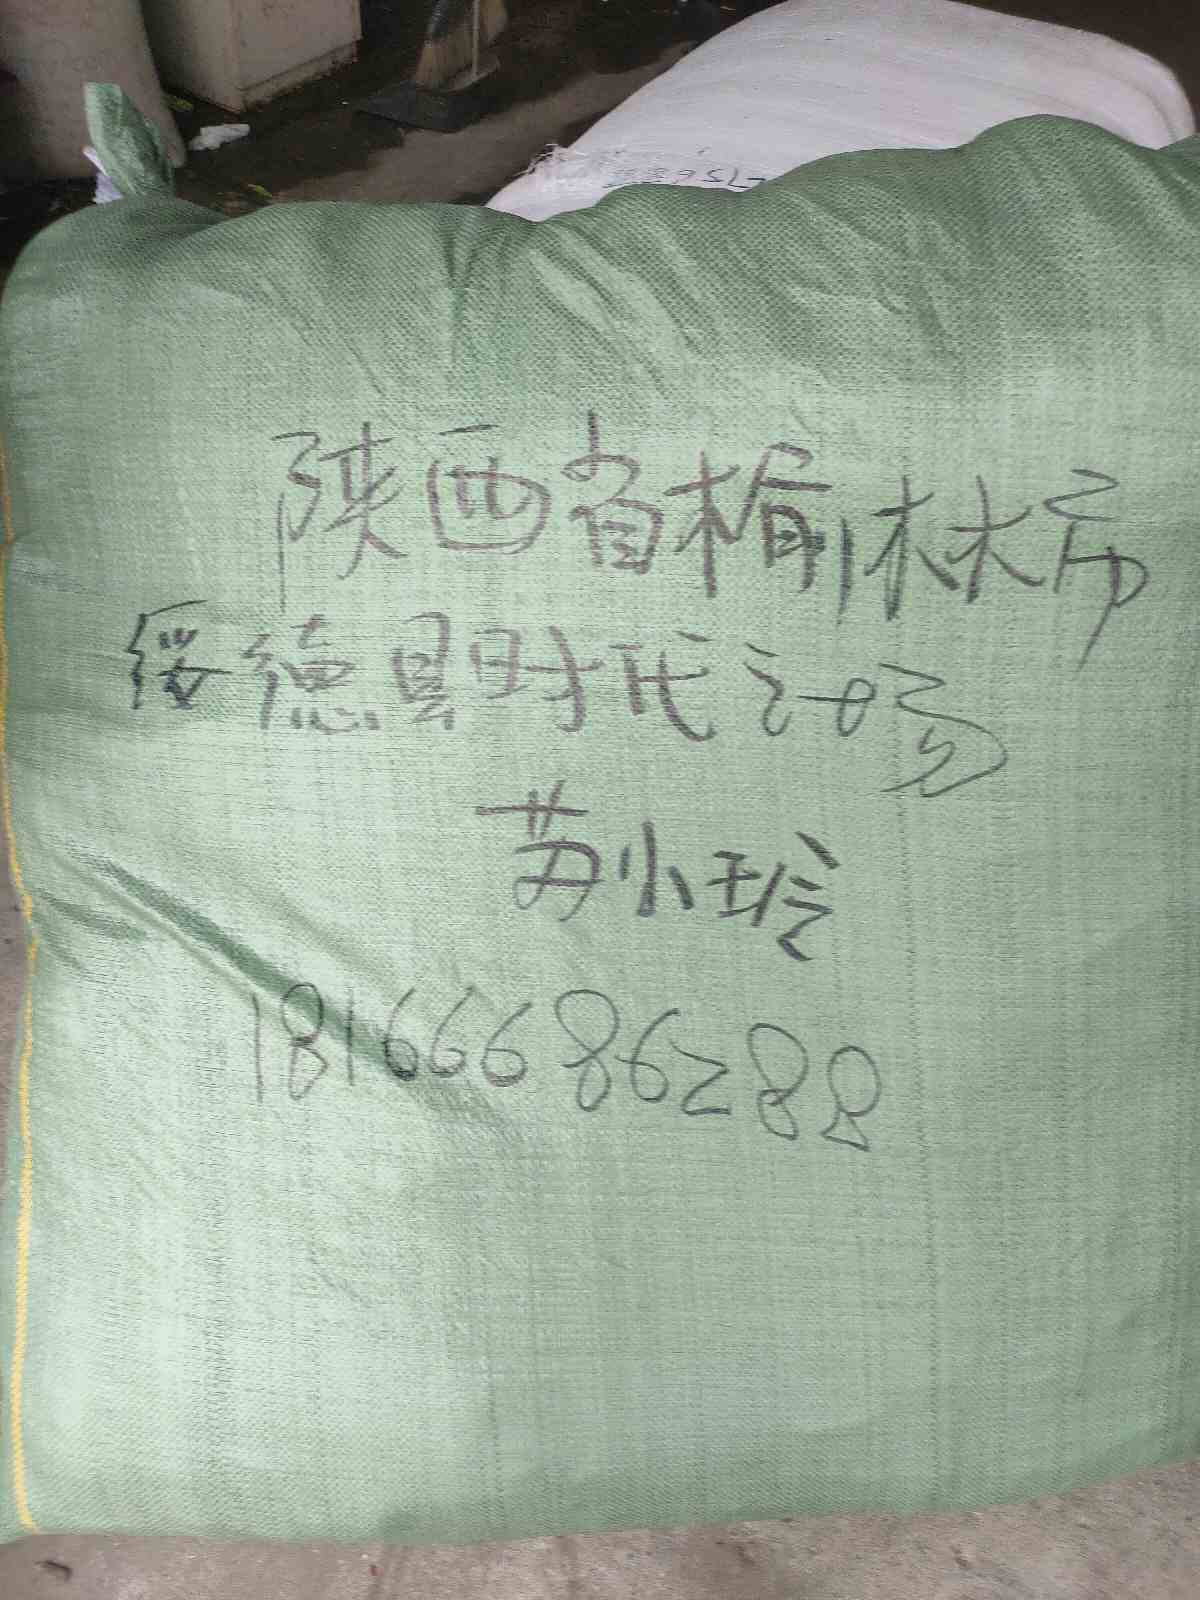 陕西省榆林市
绥德县时代广场
苏小玲
18166686288